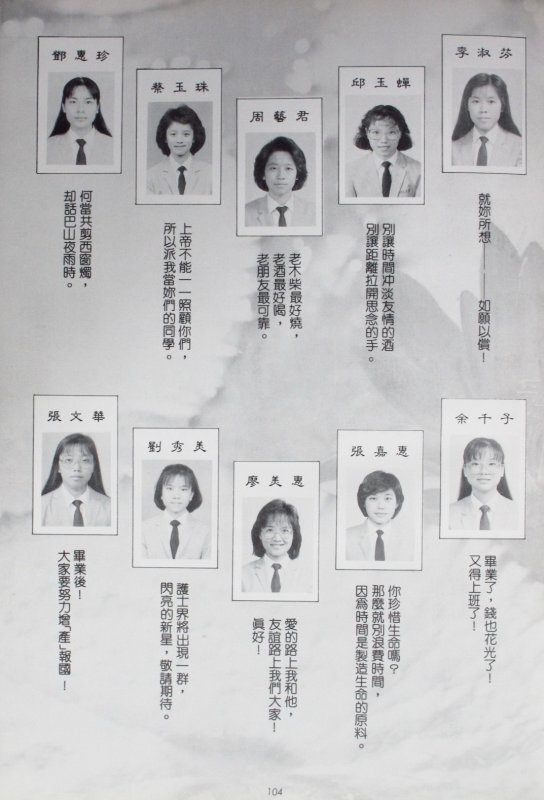 李淑芬
就妳所想——如願以償！
邱玉蟬
別讓時間冲淡友情的酒
別讓距離拉開思念的手。
周藝君
老木柴最好燒，
老酒最好喝，
老朋友最可靠。
蔡玉珠
上帝不能一一照顧你們，
所以派我當妳們的同學。
鄧惠珍
何當共剪西窗燭，
却話巴山夜雨時。
余千子
畢業了，錢也花光了！
又得上班了！
張嘉惠
你珍惜生命嗎？
那麼就別浪費時間，
因爲時間是製造生命的原料。
廖美惠
愛的路上我和他，
友誼路上我們大家！
眞好！
劉秀美
護士界將出現一群，
閃亮的新星，敬請期待。
張文華
畢業後！
大家要努力增「產」報國！
104